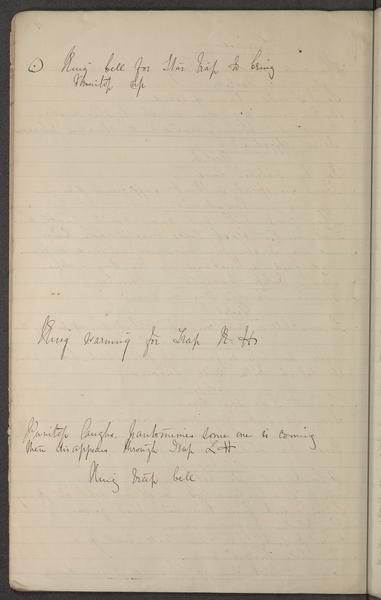 Ring bell for Star Trap to bring
Vanitop up
Ring warning for Trap R. H.
Vanitop laughs. Pantomimes some one is coming
then disappears through Trap L H
Ring trap bell